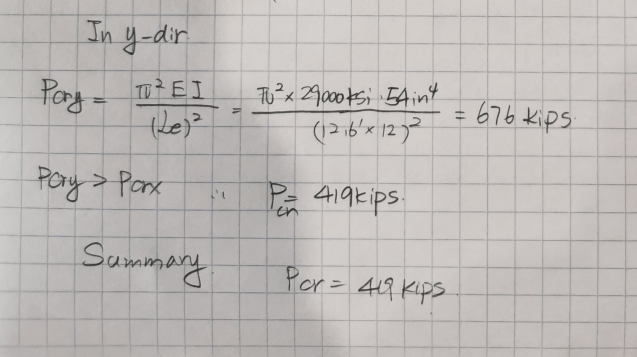 In y-dir
Pcry = π² E I / (Le)² = π² x 29000 ksi · 54 in⁴ / (12.6' x 12)² = 676 kips.
Pcry > Pcrx ∴ Pcr = 419 kips.
Summary.
Pcr = 419 kips.